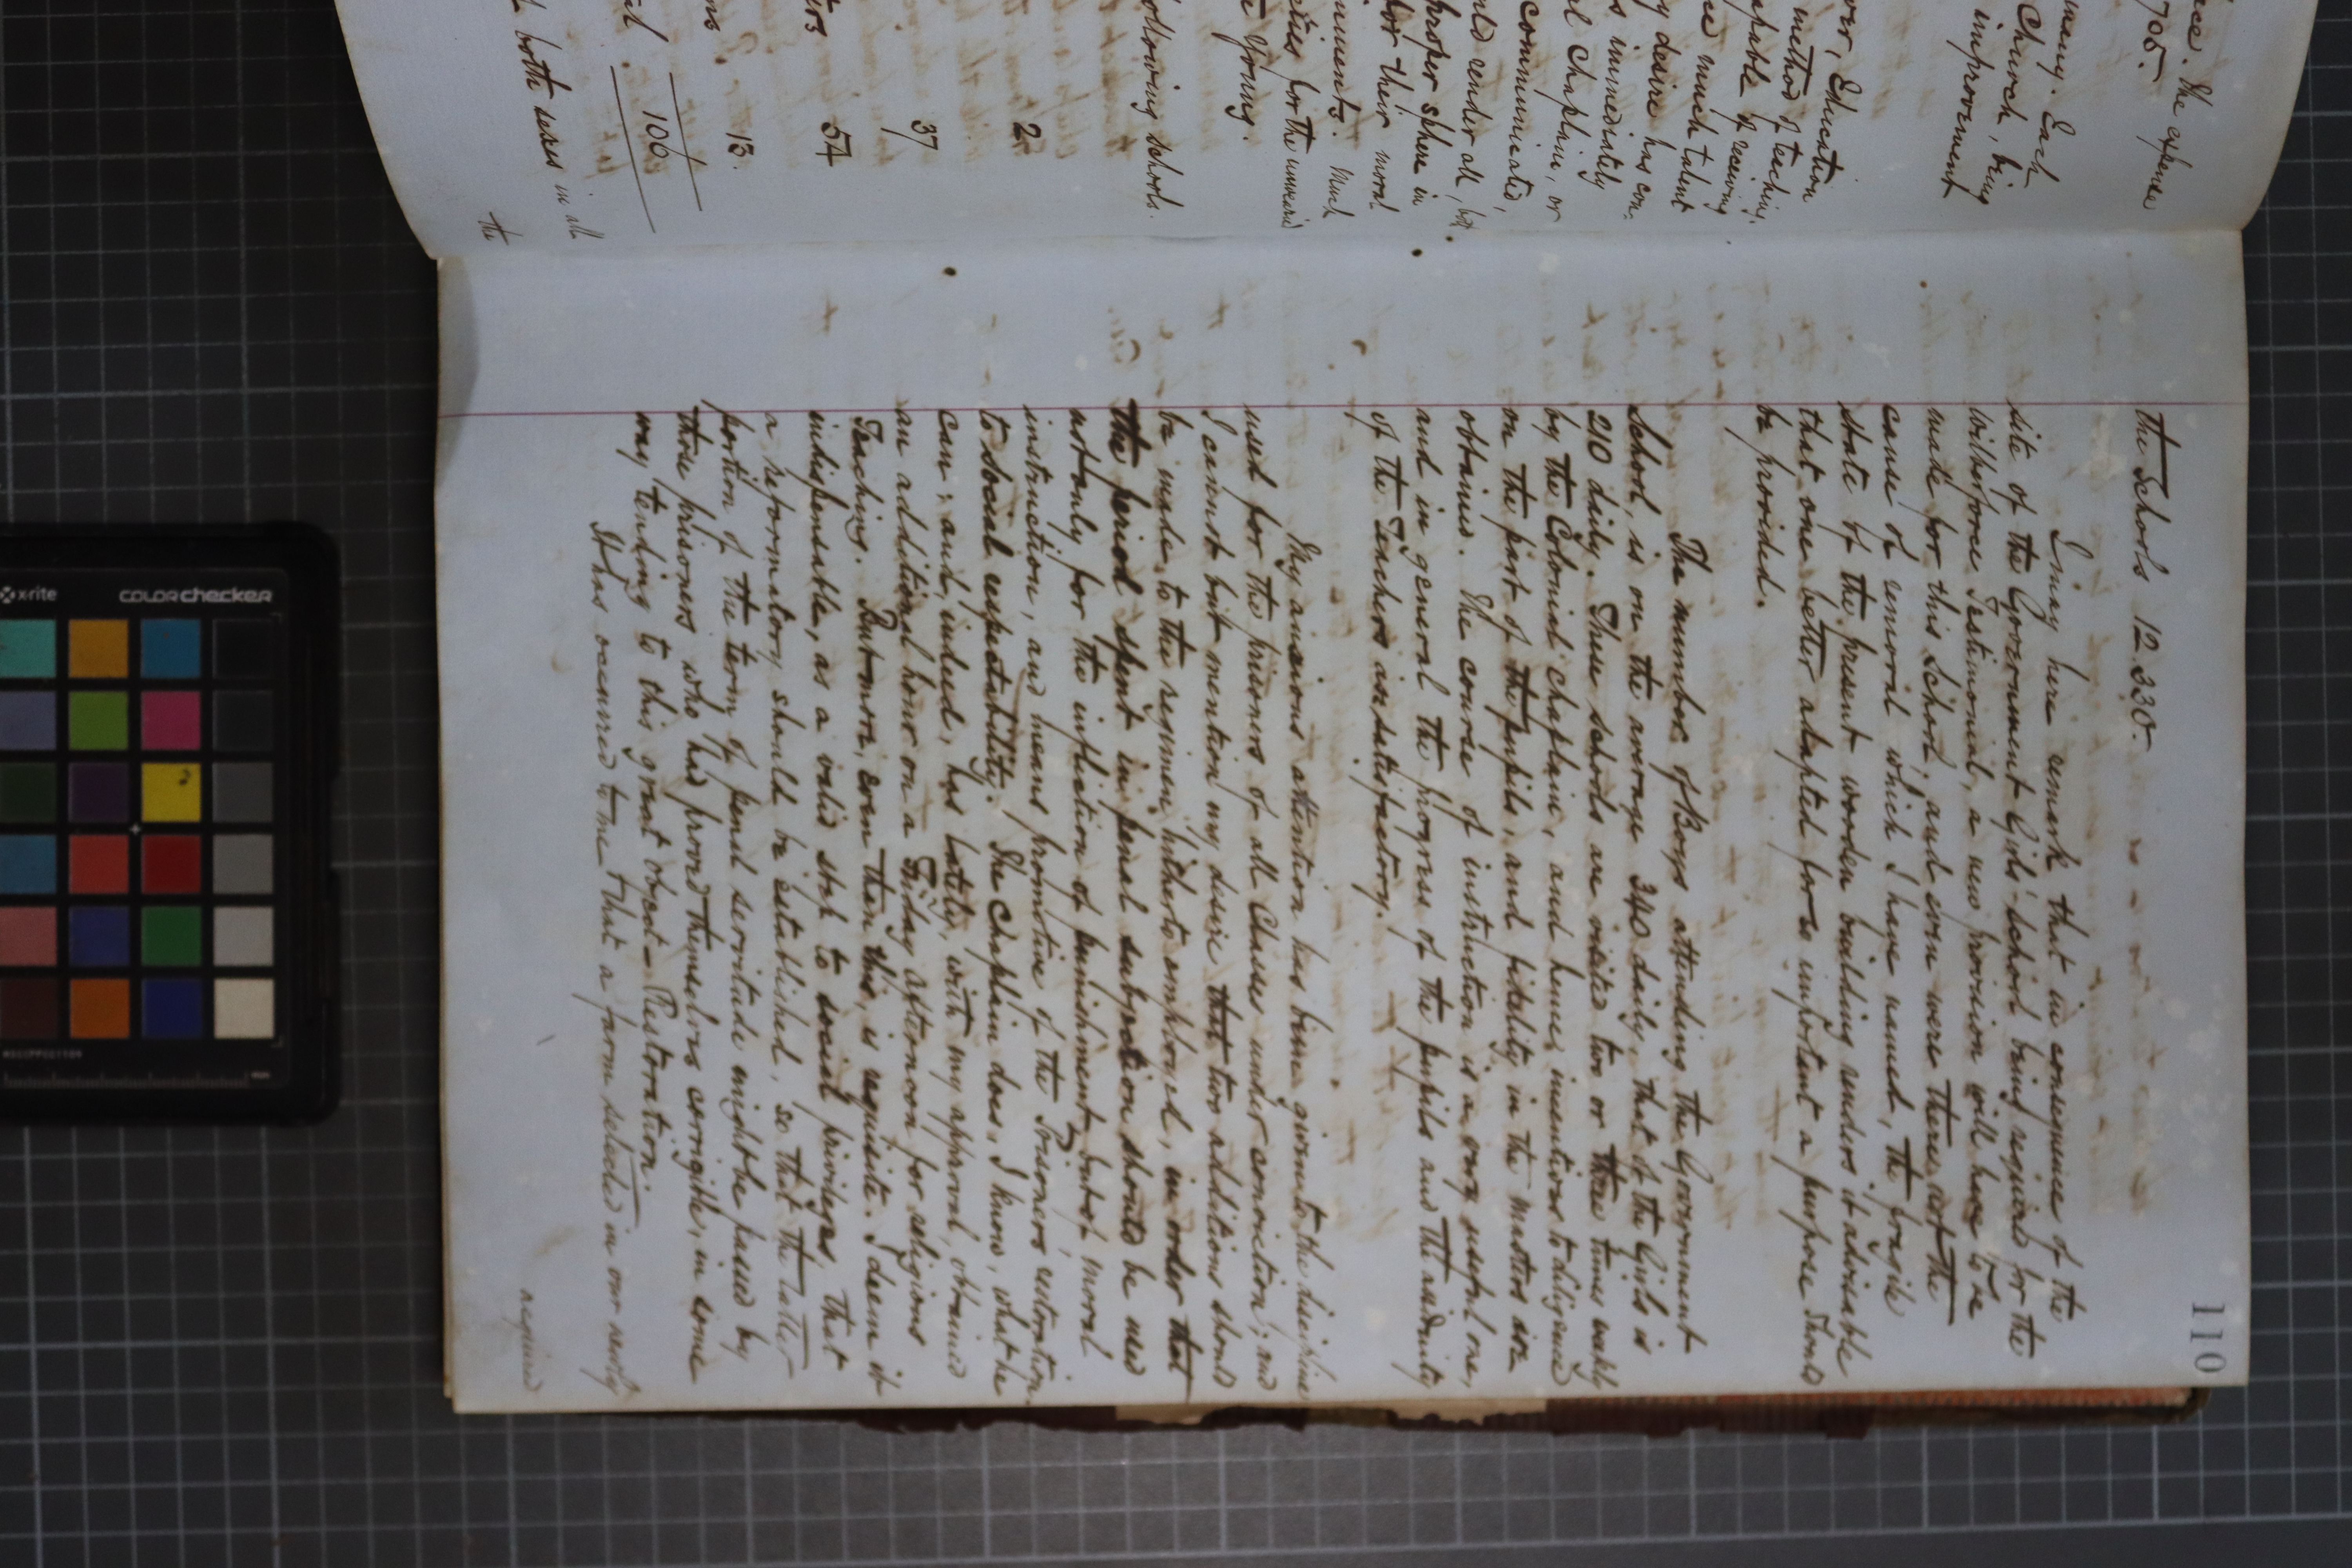 nce. The expense
705.
many. Each
Church, being
improvement
our, Education
method of teaching,
capable of receiving
me much talent
y desire has con-
s immediately
al Chaplain, or
communicated,
uld render all, but
proper sphere in
for their moral
uments. Much
cities for the numeri
e Young.
ollowing schools.
2
37
54
13.
al 106
both sexes in all
the
110
the Schools 12.330.
I may here remark that in consequence of the
site of the Government Girls' School being required for the
Wilberforce Testimonial, a new provision will have to be
made for this School; and even were there not the
cause of removal which I have named, the fragile
state of the present wooden building renders it advisable
that one better adapted for so important a purpose should
be provided.
The number of Boys attending the Government
School, is on the average 340 daily, that of the Girls is
210 daily. These schools are visited two or three times weekly
by the Colonial Chaplain, and hence, incentives to diligence
on the part of the pupils, and fidelity in the masters are
obtained. The course of instruction is a very useful one,
and in general the progress of the pupils and the assiduity
of the Teachers are satisfactory.
My anxious attention has been given to the discipline
used for the prisoners of all Classes under conviction; and
I cannot but mention my desire that two additions should
be made to the regimen hitherto employed, in order that
the period spent in penal subjection should be used
not only for the infliction of punishment, but of moral
instruction, and means promotive of the Prisoners' restoration
to social respectability. The Chaplain does, I know, what he
can; and, indeed, has lately, with my approval, obtained
an additional hour on a Friday afternoon for religious
Teaching. But more, even than this, is requisite. I deem it
indispensable, as a valid step to social privileges, that
a reformatory should be established, so that the latter
portion of the term of penal servitude might be passed by
those prisoners who had proved themselves corrigible, in some
way tending to this great object – Restoration.
It has occurred to me that a farm selected in our newly
acquired